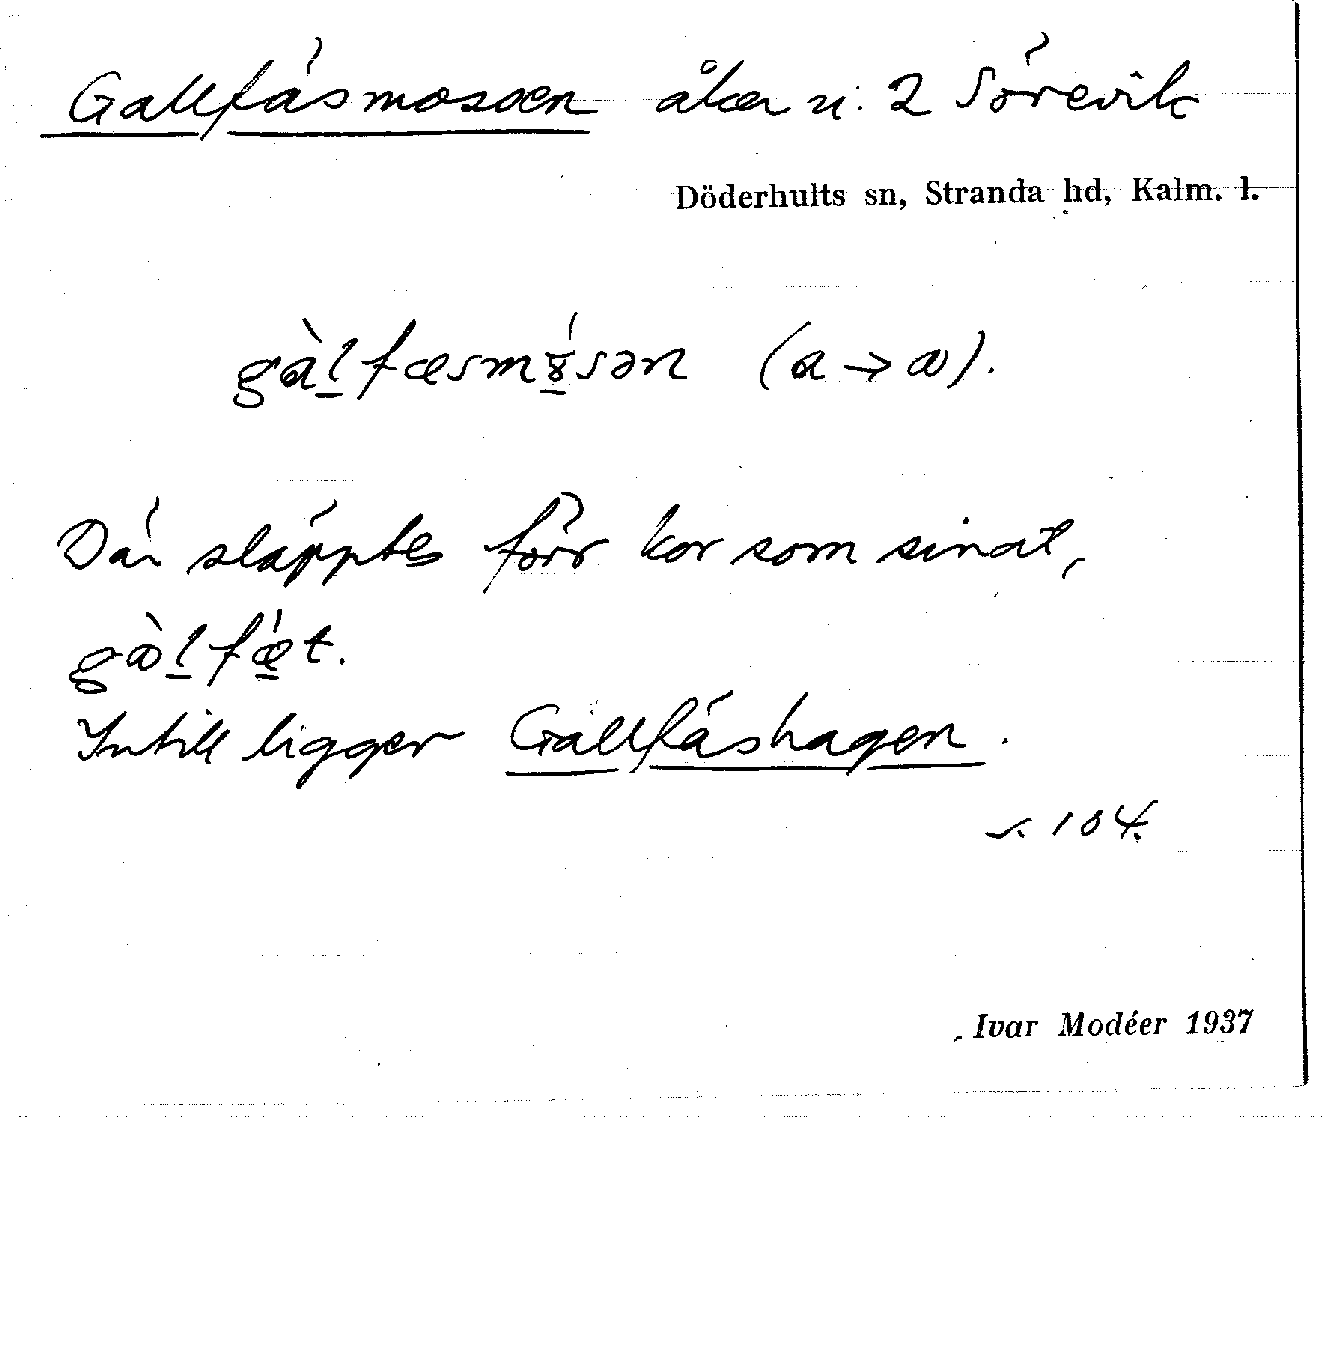 Gallfäsmossen åker u. 2 Sörevik
Döderhults sn, Stranda hd, Kalm. l.
gàl̠fæsmɤ̠́sən (a → ɷ).
Där släpptes förr kor som sinat,
gɷ̀l̠fǽ̠t.
Intill ligger Gallfäshagen.
s. 104.
Ivar Modéer 1937